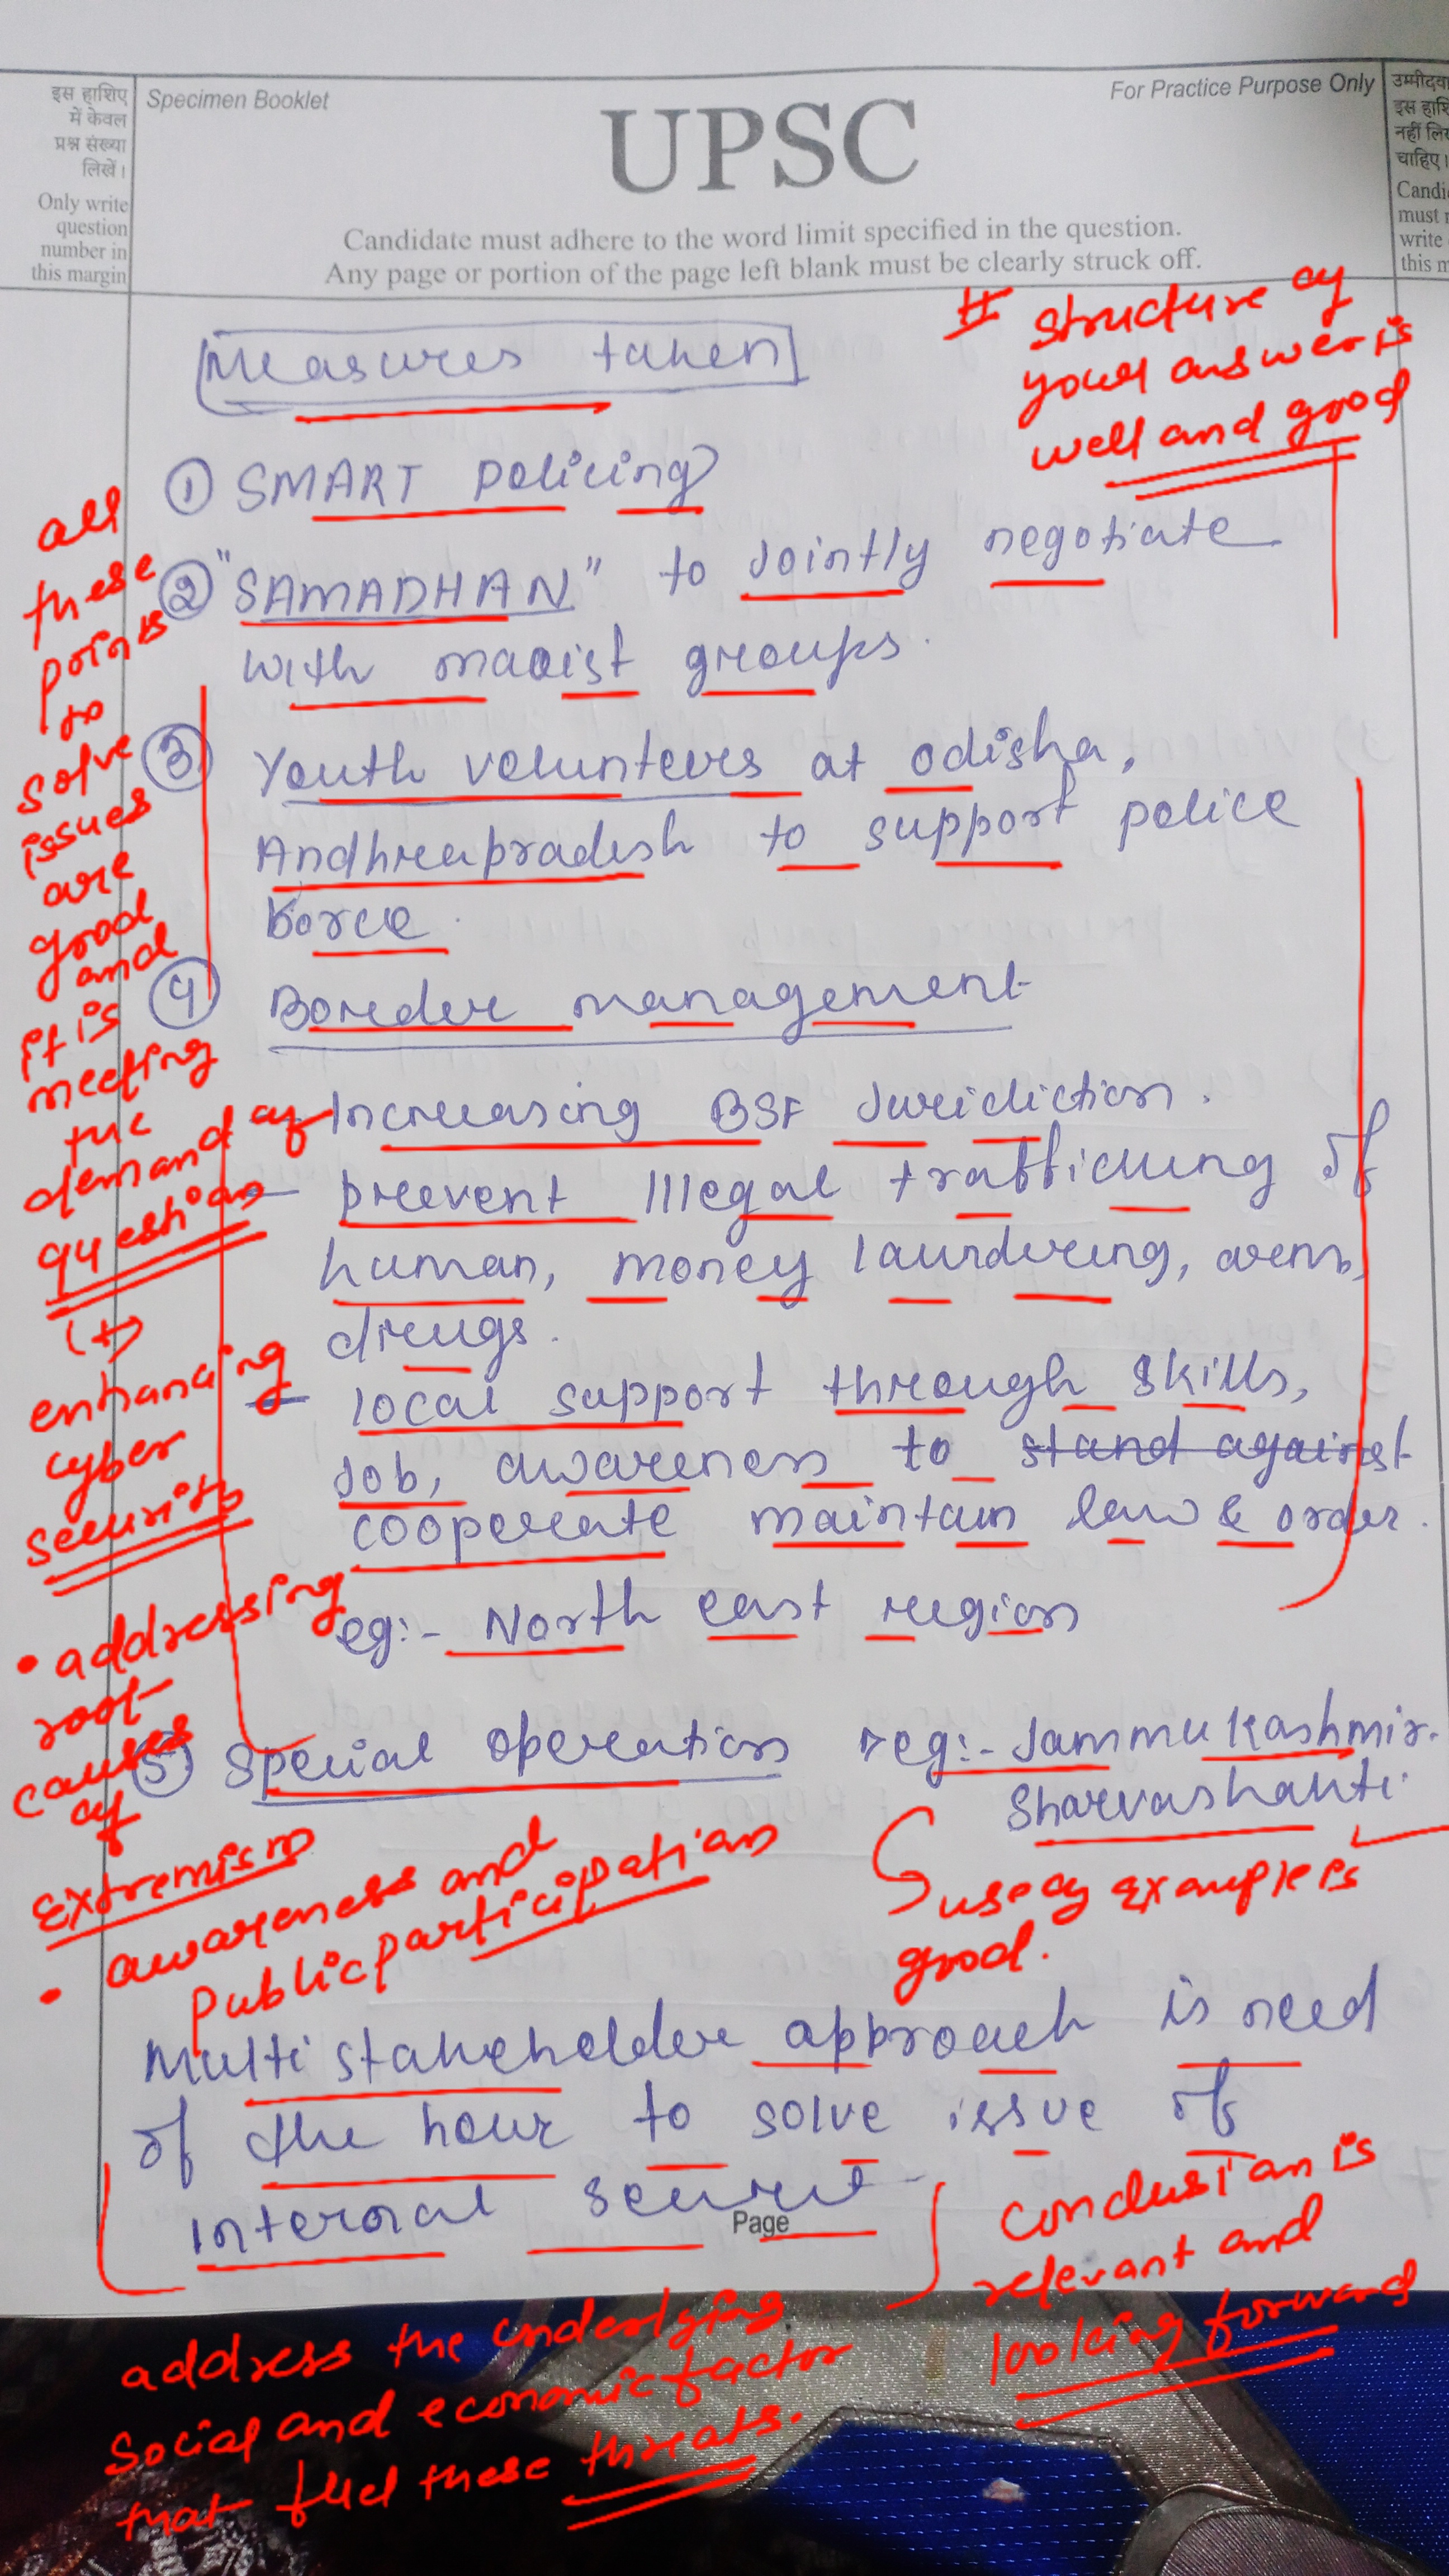 इस हाशिए
में केवल
प्रश्न संख्या
लिखें।
Only write
question
number in
this margin
Specimen Booklet
For Practice Purpose Only
UPSC
Candidate must adhere to the word limit specified in the question.
Any page or portion of the page left blank must be clearly struck off.
उम्मीदवा
इस हाशि
नहीं लिख
चाहिए।
Candi
must n
write
this m
# structure of
your answer is
well and good
Measures taken
① SMART policing
② "SAMADHAN" to Jointly negotiate
with maoist groups.
③ Youth volunteers at odisha,
Andhrapradesh to support police
Force.
④ Border management
- Increasing BSF Juridiction.
- prevent Illegal trafficking of
human, money laundering, arms,
drugs.
- local support through skills,
Job, awareness to stand against
cooperate maintain law & order.
eg:- North east region
⑤ Special operation eg:- Jammu Kashmir.
Sharvashakti.
all
these
points
to
solve
issues
are
good
and
it is
meeting
the
demand of
question
(+)
enhancing
cyber
security
• addressing
root
causes
of
Extremism
• awareness and
public participation
use of example is
good.
Multi stakeholder approach is need
of the hour to solve issue of
internal
Page
conclusion is
relevant and
looking forward
address the underlying
social and economic factor
that fuel these threats.